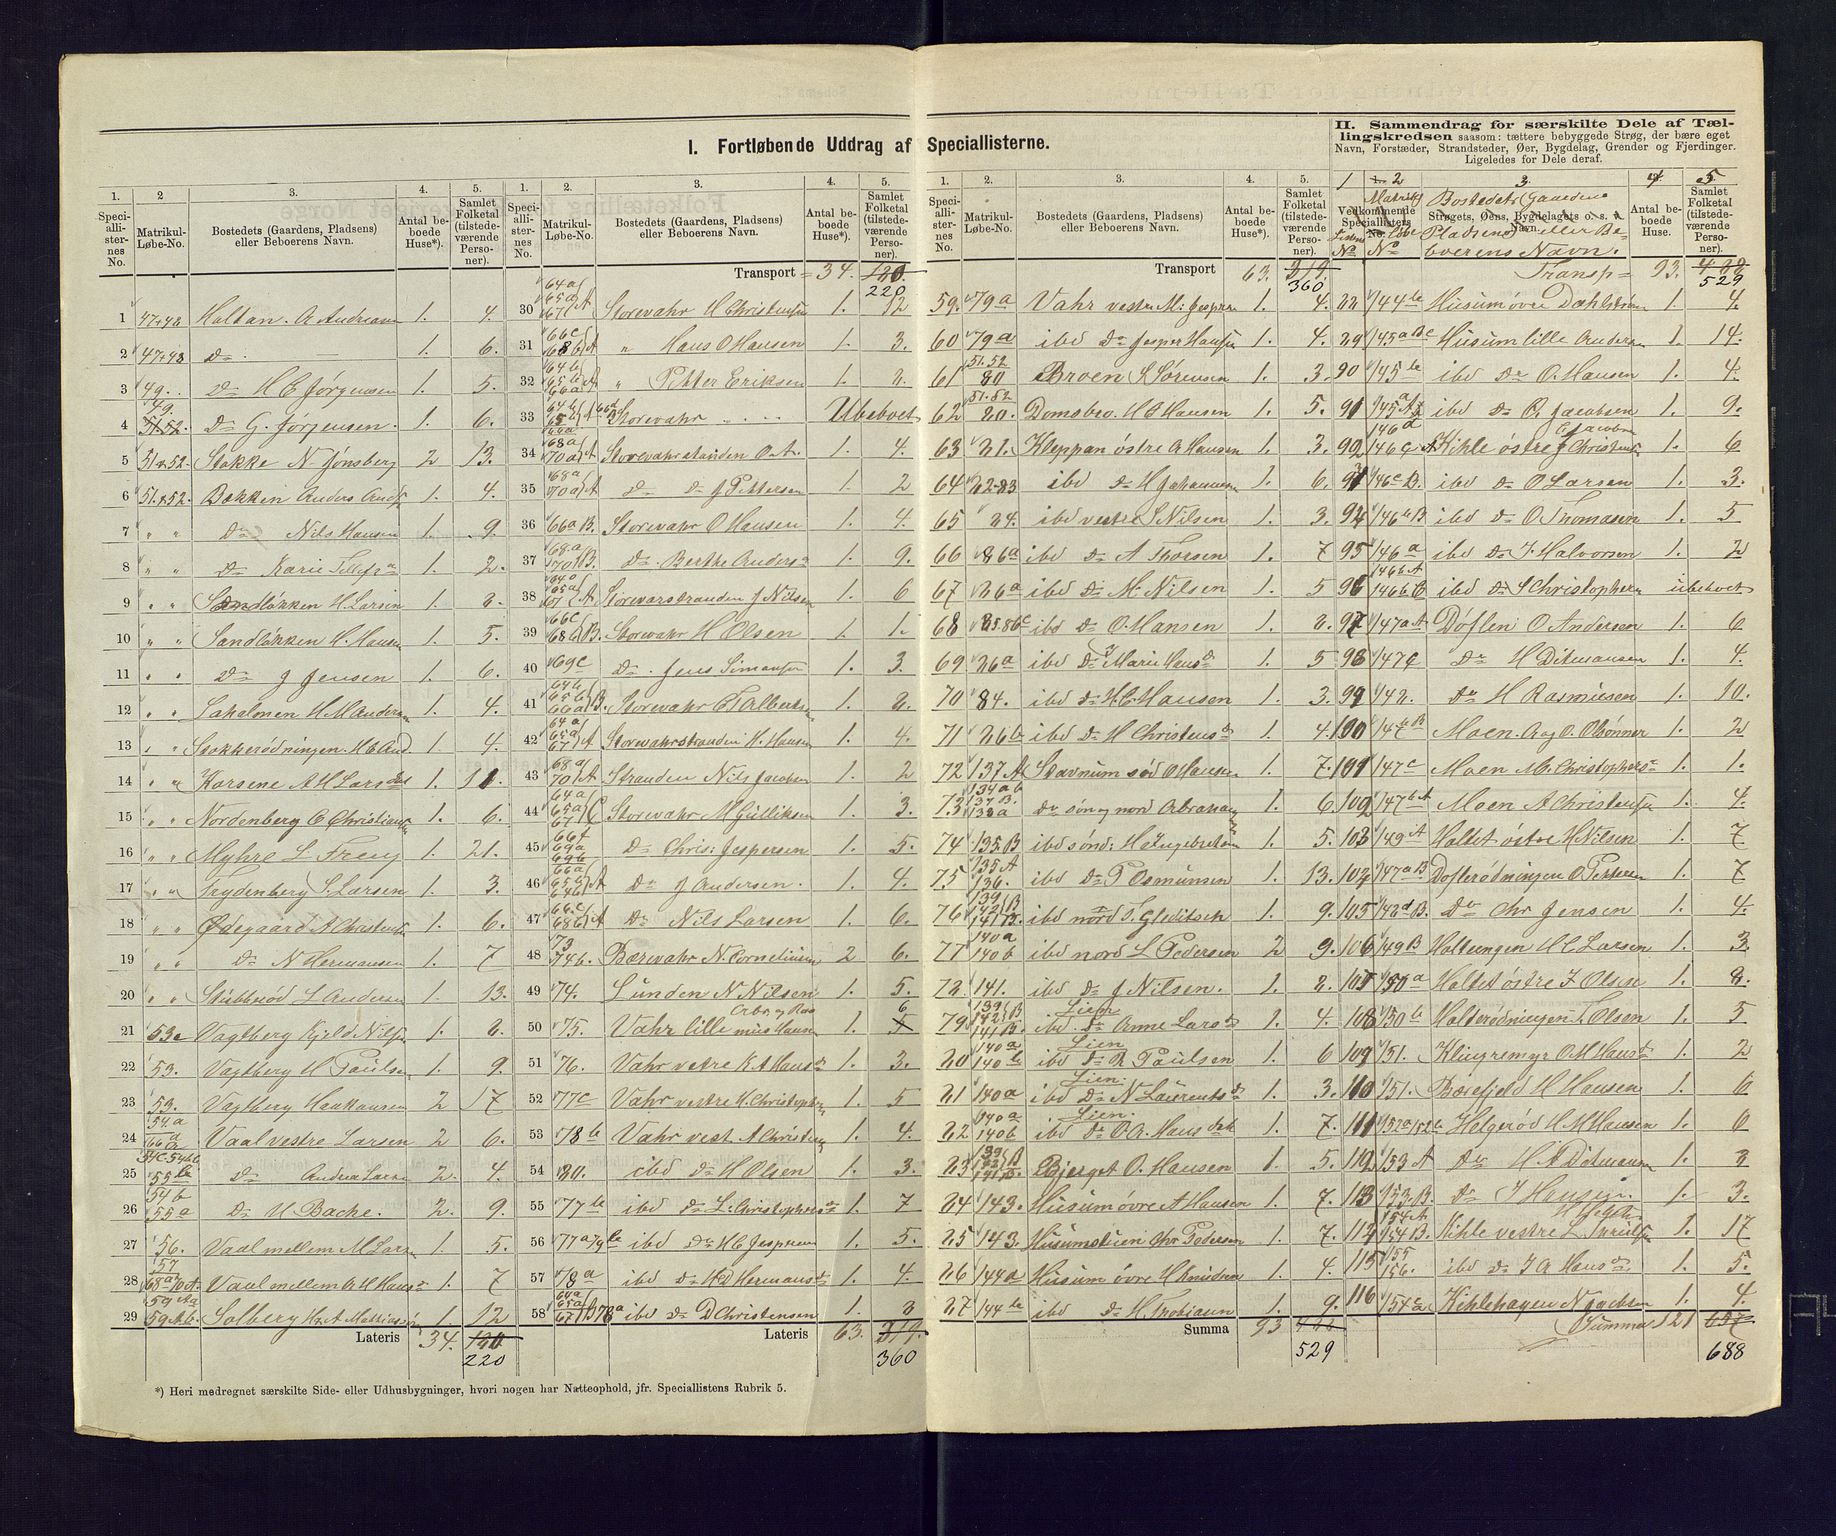 I. Fortløbende Uddrag af Speciallisterne.
II. Sammendrag for særskilte Dele af Tæl-
lingskredsen saasom: tættere bebyggede Strøg, der bære eget
Navn, Forstæder, Strandsteder, Øer, Bygdelag, Grender og Fjerdinger.
Ligeledes for Dele deraf.
1. 2 3. 4. 5.
Speci-allister-nes No. Matrikul-Løbe-No. Bostedets (Gaardens, Pladsens) eller Beboerens Navn. Antal be-boede Huse*). Samlet Folketal (tilstede-værende Perso-ner).
1 47+48 Holtan A Andreasen 1. 4.
2 47+48 do 1. 6.
3 49. do H C Jørgensen 1. 5.
4 49. 51.52. do G. Jørgensen. 1. 6.
5 51&52. Stokke N. Tønsberg 2 13.
6 51&52. Bakken Anders Andr 1. 4.
7 " " do Nils Hansen 1. 9.
8 " " do Karie Tollefsn 1. 2.
9 " " Sandløkken H. Larsen 1. 2.
10 " " Sandløkken H. Hansen 1. 5.
11 " " do J Jensen 1. 6.
12 " " M Anders 1. 4.
13 " " Stokkerødningen H C And 1. 4.
14 " " Korsene A M Larsdat 1. 11.
15 " " Nordenberg C Christians 1. 6.
16 " " Myhre L Frey 1. 21.
17 " " Frydenberg S. Larsen 1. 3.
18 " " Ødegaard A Christens 1. 6.
19 " " do N Hermansen 1. 7
20 " " Stubberød L Anderse 1. 13.
21 53c Vagtberg Kjeld Nils 1. 2.
22 53. Vagtberg H Paulse 1. 9.
23 53. Vagtberg Haakansen 2 17
24 54a 66d Vaal vestre Larsen 2 6.
25 55b do Andrea Lars 2. 4.
26 54b 55a do H Bache. 2. 9.
27 56. Vaal mellem M Lars 1. 5.
28 57 Vaal mellem A H Hans 1. 7
29 59Aa 59Ab. Solberg H A Mathias 1. 12
Lateris 34. 220
1. 2. 3. 4. 5.
Speci-allister-nes No. Matrikul-Løbe-No. Bostedets (Gaardens, Pladsens) eller Beboerens Navn. Antal be-boede Huse*). Samlet Folketal (tilstede-værende Perso-ner).
Transport = 34. 220
30 64a 65a 67 A Storevahr H Christensen 1. 12
31 66c 68b A " Hans O Hansen 1. 3.
32 64b 65b 66a A " Petter Eriksen 1. 2.
33 Storevahr Ubeboet
34 68a 70a A Storevahrstranden O. A. 1. 4.
35 68a 70a A do do J Pettersen 1. 2
36 66a B. Storevahr O Hansen 1. 4.
37 68a 70 B. do Berthe Anders 1. 9.
38 Storevarstranden J Nilsen 1. 6
39 66c 68b B. Storevahr H Olsen 1. 1.
40 69c do Jens Simonsen 1. 3.
41 64b 65b 66a B. Storevahr E Alberts 1. 2.
42 64a 65a 67 A Storevahrstranden H. Hansen 1. 4.
43 68a 70 A Stranden Nils Jacobsen 1. 2
44 64a 65a 67 C Storevahr M Gulliksen 1. 3.
45 66f 69a 69b do Chris: Jespersen 1. 5.
46 66a 65b 64b A do J Andersen. 1. 4.
47 66c 68b A do Nils Larsen 1. 6.
48 73 74b. Bærevahr N. Cornelius 2 6.
49 74. Lunden N Nilsen 1. 5.
50 75. Vahr lille Hans 1. 6
51 76. Vahr vestre K A Hans 1. 3.
52 77c Vahr vestre H. Christoph 1. 5
53 78b Vahr vest A Christian 1. 4.
54 80. ibd do H Olsen 1. 3.
55 77b ibd do L. Christophers 1. 7
56 77a 79b ibd do H C Jespersen 1. 5.
57 78a ibd do H A Hermans 1. 4.
58 64a 65a 67 B 78a ibd do D Christensen 1. 3
Lateris 63. 360
1. 2. 3. 4. 5.
Speci-allister-nes No. Matrikul-Løbe-No. Bostedets (Gaardens, Pladsens) eller Beboerens Navn. Antal be-boede Huse*). Samlet Folketal (tilstede-værende Perso-ner).
Transport 63. 319. 360
59. 79a Vahr vestre M: Jespersen 1. 4.
60 79a ibd do Jesper Hansen 1. 4.
61 51.52 80 Broen S Sørensen 1. 3.
62 51.52 80. Domsbro. H C Hansen 1. 5.
63 81. Kleppan østre A Hansen 1. 3.
64 82-83 ibd do H Johannesen 1. 6.
65 84. ibd vestre S Nilsen 1. 3.
66 86a ibd do A Thorsen 1. 7
67 86a ibd do M. Nilsen 1. 5
68 85.86c ibd do O. Hansen 1. 2.
69 86a ibd do Marie Hans 1. 5
70 84. ibd do H. C. Hansen 1. 3.
71 86b ibd do H Christens 1. 4.
72 137A Stavnum sød O Hansen 1. 7.
73 134ab 137B. 138a do søn og nord Abraham 1. 6
74 135B ibd sønd: H Ingebretsen 1. 5
75 135A 136. ibd do T Osmundsen 1. 13.
76 139 142 141 B. ibd nord T. Gleditsch 1. 9.
77 140a 140b ibd nord L Pedersen 2 9.
78 141. ibd do J Nilsen. 1. 2.
79 139 142 141 B. ibd. Lien do Anne Lars 1. 4.
80 140a 140b ibd Lien do R Paulsen 1. 6
81 140a ibd Lien do N Laurents 1. 3.
82 140a 140b ibd Lien. do O A. Hans 1. 7.
83 Bjerget O. Hansen 1. 5.
84 143. Husumøvre A Hansen 1. 7.
85 143. Husumstuen Chr Pedersen 1. 7
86 144a Husum øvre H Knudsen 1. 4.
87 144b ibd do H. Thobiasen 1. 9.
Summa 93 529
1 2 3. 4 5.
Vedkommende Speciallisters No. Matrikul Løbe No. Strøgets, Øens, Bygdelagets o. s. v. Navn. Antal be-boede Huse. Samlet Folketal (tilstede-værende Perso-ner).
Bostedets Gaardens Pladsens eller Be-boerens Navn.
Transp = 93. 529
88 144b Husumøvre 1. 4.
89 145aBc Husum lille Anders 1. 14.
90 145b ibd do O. Hansen 1. 4.
91 145a A ibd do O, Jacobsen 1. 9.
92 146d 146c A Kihle østre J Christens 1. 6
93 146c B. ibd do O Larsen 1. 3.
94 146b B ibd do O. Thomasen 1. 5
95 146a ibd do J. Halvorsen 1. 2
96 146b A 146b C ibd do S Christophers ubeboet
97 147a A Døflen O. Andersen 1. 6
98 147c do H Ditmansen 1. 4.
99 148. do H Rasmusen 1. 10.
100 147b B Moen. A og O. 1. 2
101 147c Moen M. Christophers 1. 1.
102 147b A Moen A Christensen 1. 4.
103 149A Holtet østre H Nilsen 1. 7
104 147a B Døflerødningen O Pettersen 1. 7
105 148d B. do Chr Jensen 1. 4.
106 149B Holtungen H C Larsen 1. 3.
107 150a Holtet østre J Olsen 1. 2.
108 150b Holterødningen T. Olsen 1. 5
109 151. O M Hans 1. 2
110 151. H Hansen 1. 6
111 152a 152b Helgerød H M Hansen 1. 6
112 153A do H A Ditmansen 1. 3
113 153.B. do J Hansen. 1. 3.
114 154A 154B. Kihle vestre L 1. 17
115 155 156. ibd do J A Hans 1. 5.
116 154c Kihlehagen N Jacobsen 1. 4.
Summa 121 688
*) Heri medregnet særskilte Side- eller Udhusbygninger, hvori nogen har Natteophold, jfr. Speciallistens Rubrik 5.